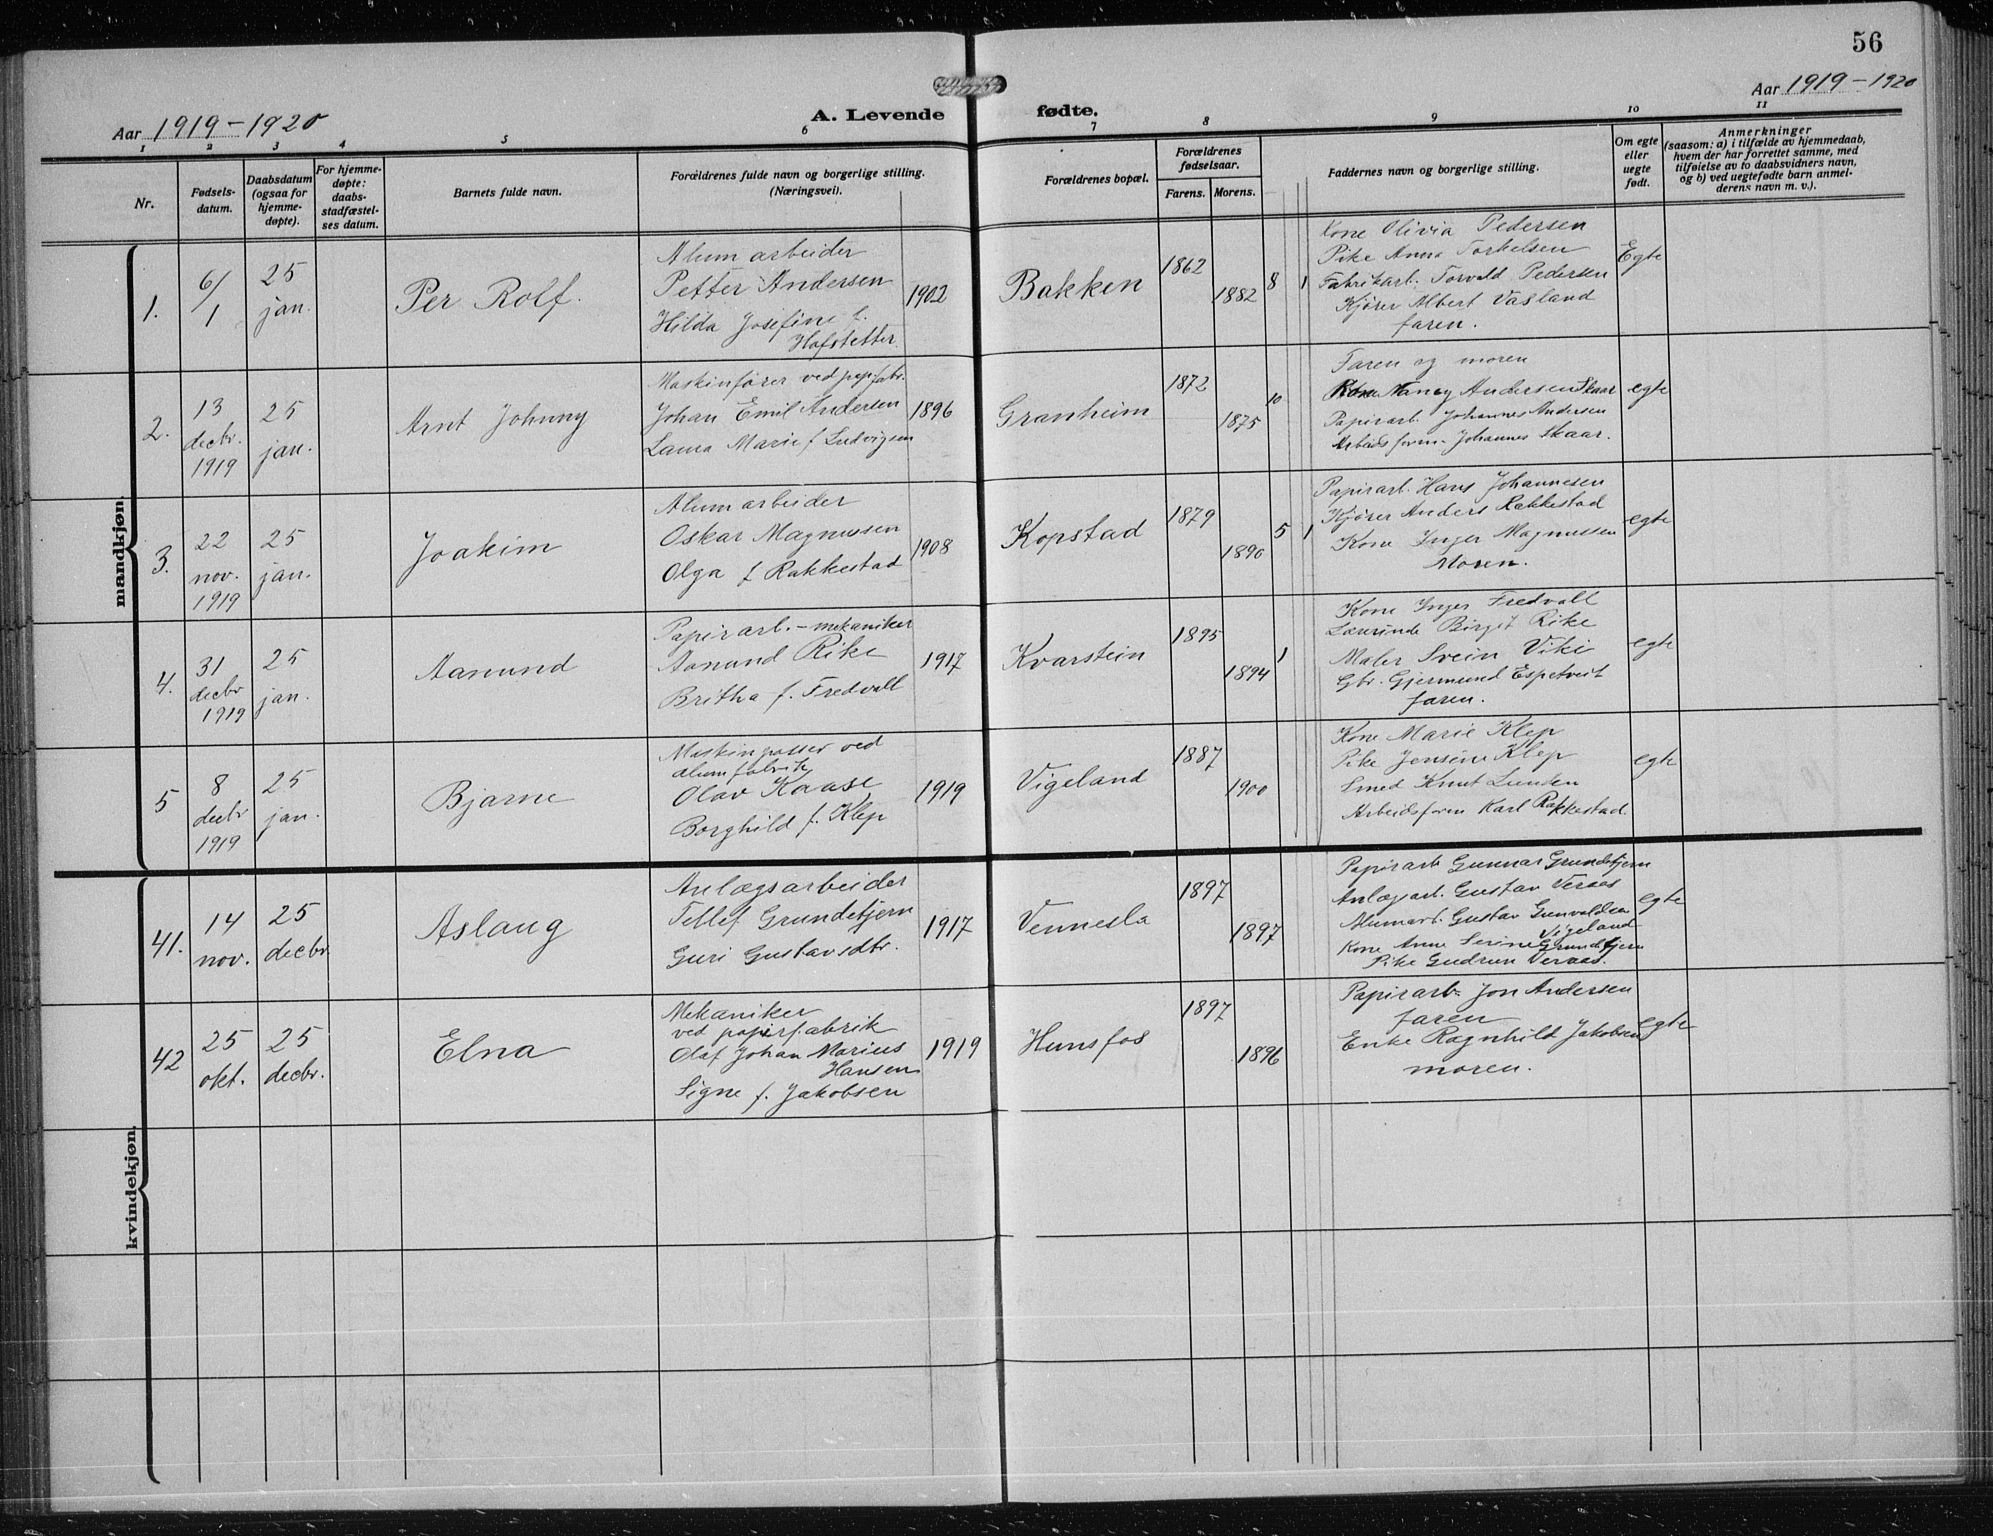 56
Aar 1919-1920
A. Levende fødte.
Aar 1919-1920
1 2 3 4 5 6 7 8 9 10 11
Nr.
Fødsels-
datum.
Daabsdatum
(ogsaa for
hjemme-
døpte).
For hjemme-
døpte:
daabs-
stadfæstel-
ses datum.
Barnets fulde navn.
Forældrenes fulde navn og borgerlige stilling.
(Næringsvei).
Forældrenes bopæl.
Forældrenes
fødselsaar.
Farens. Morens.
Faddernes navn og borgerlige stilling.
Om egte
eller
uegte
født.
Anmerkninger
(saasom: a) i tilfælde av hjemmedaab,
hvem der har forrettet samme, med
tilføielse av to daabsvidners navn,
og b) ved uegtefødte barn anmel-
derens navn m. v.).
mandkjøn.
1. 6/1 25 jan. Per Rolf.
Alum arbeider
Petter Andersen
Hilda Josefine f.
Hofstetter.
1902 Bakken 1862 1882 8 1
Kone Olivia Pedersen
Pike Anna Torkelsen
Fabrikarb. Torvald Pedersen
Kjører Albert Vasland
faren.
Egte
2. 13 decbr. 1919 25 jan. Arnt Johnny
Maskinfører ved pap.fabr.
Johan Emil Andersen
Laura Marie f Ludvigsen
1896 Granheim 1872 1875 10
Faren og moren
Kone Nancy Andersen Skaar
Papirarb. Johannes Andersen
Arbeidsform. Johannes Skaar.
egte
3. 22 nov. 1919 25 jan. Joakim
Alum arbeider
Oskar Magnussen
Olga f Rakkestad
1908 Kopstad 1879 1890 5 1
Papirarb. Hans Johannesen
Kjører Anders Rakkestad
Kone Inger Magnussen
Moren.
egte
4. 31 decbr 1919 25 jan. Aanund
Papirarb. - mekaniker
Aanund Rike
Britha f. Fredvall
1917 Kvarstein 1895 1894 1
Kone Inger Fredvall
Lærerinde Birgit Rike
Maler Svein Viki
Gbr. Gjermund Espetveit
faren.
egte
5 8 decbr 1919 25 jan. Bjarne
Maskinpasser ved
alum fabrik
Olav Kaase
Borghild f. Klep
1919 Vigeland 1887 1900
Kone Marie Klep
Pike Jensine Klep
Smed Knut Lunden
Arbeidsform Karl Rakkestad.
egte
kvindekjøn.
41. 14 nov. 25 decbr Aslaug
Anlægsarbeider
Tellef Grundetjern
Guri Gustavsdtr.
1917 Vennesla 1897 1897
Papirarb Gunnar Grundetjern
Anlægsarb. Gustav Veraas
Alumarb. Gustav Gunvaldsen
Vigeland
Kone Anne Serine Grundetjern
Pike Gudrun Veraas.
egte
42 25 okt. 25 decbr. Elna
Mekaniker
ved papirfabrik
Olaf Johan Marius
Hansen
Signe f. Jakobsen
1919 Hunsfos 1897 1896
Papirarb. Jon Andersen
faren
Enke Ragnhild Jakobsen
moren.
egte